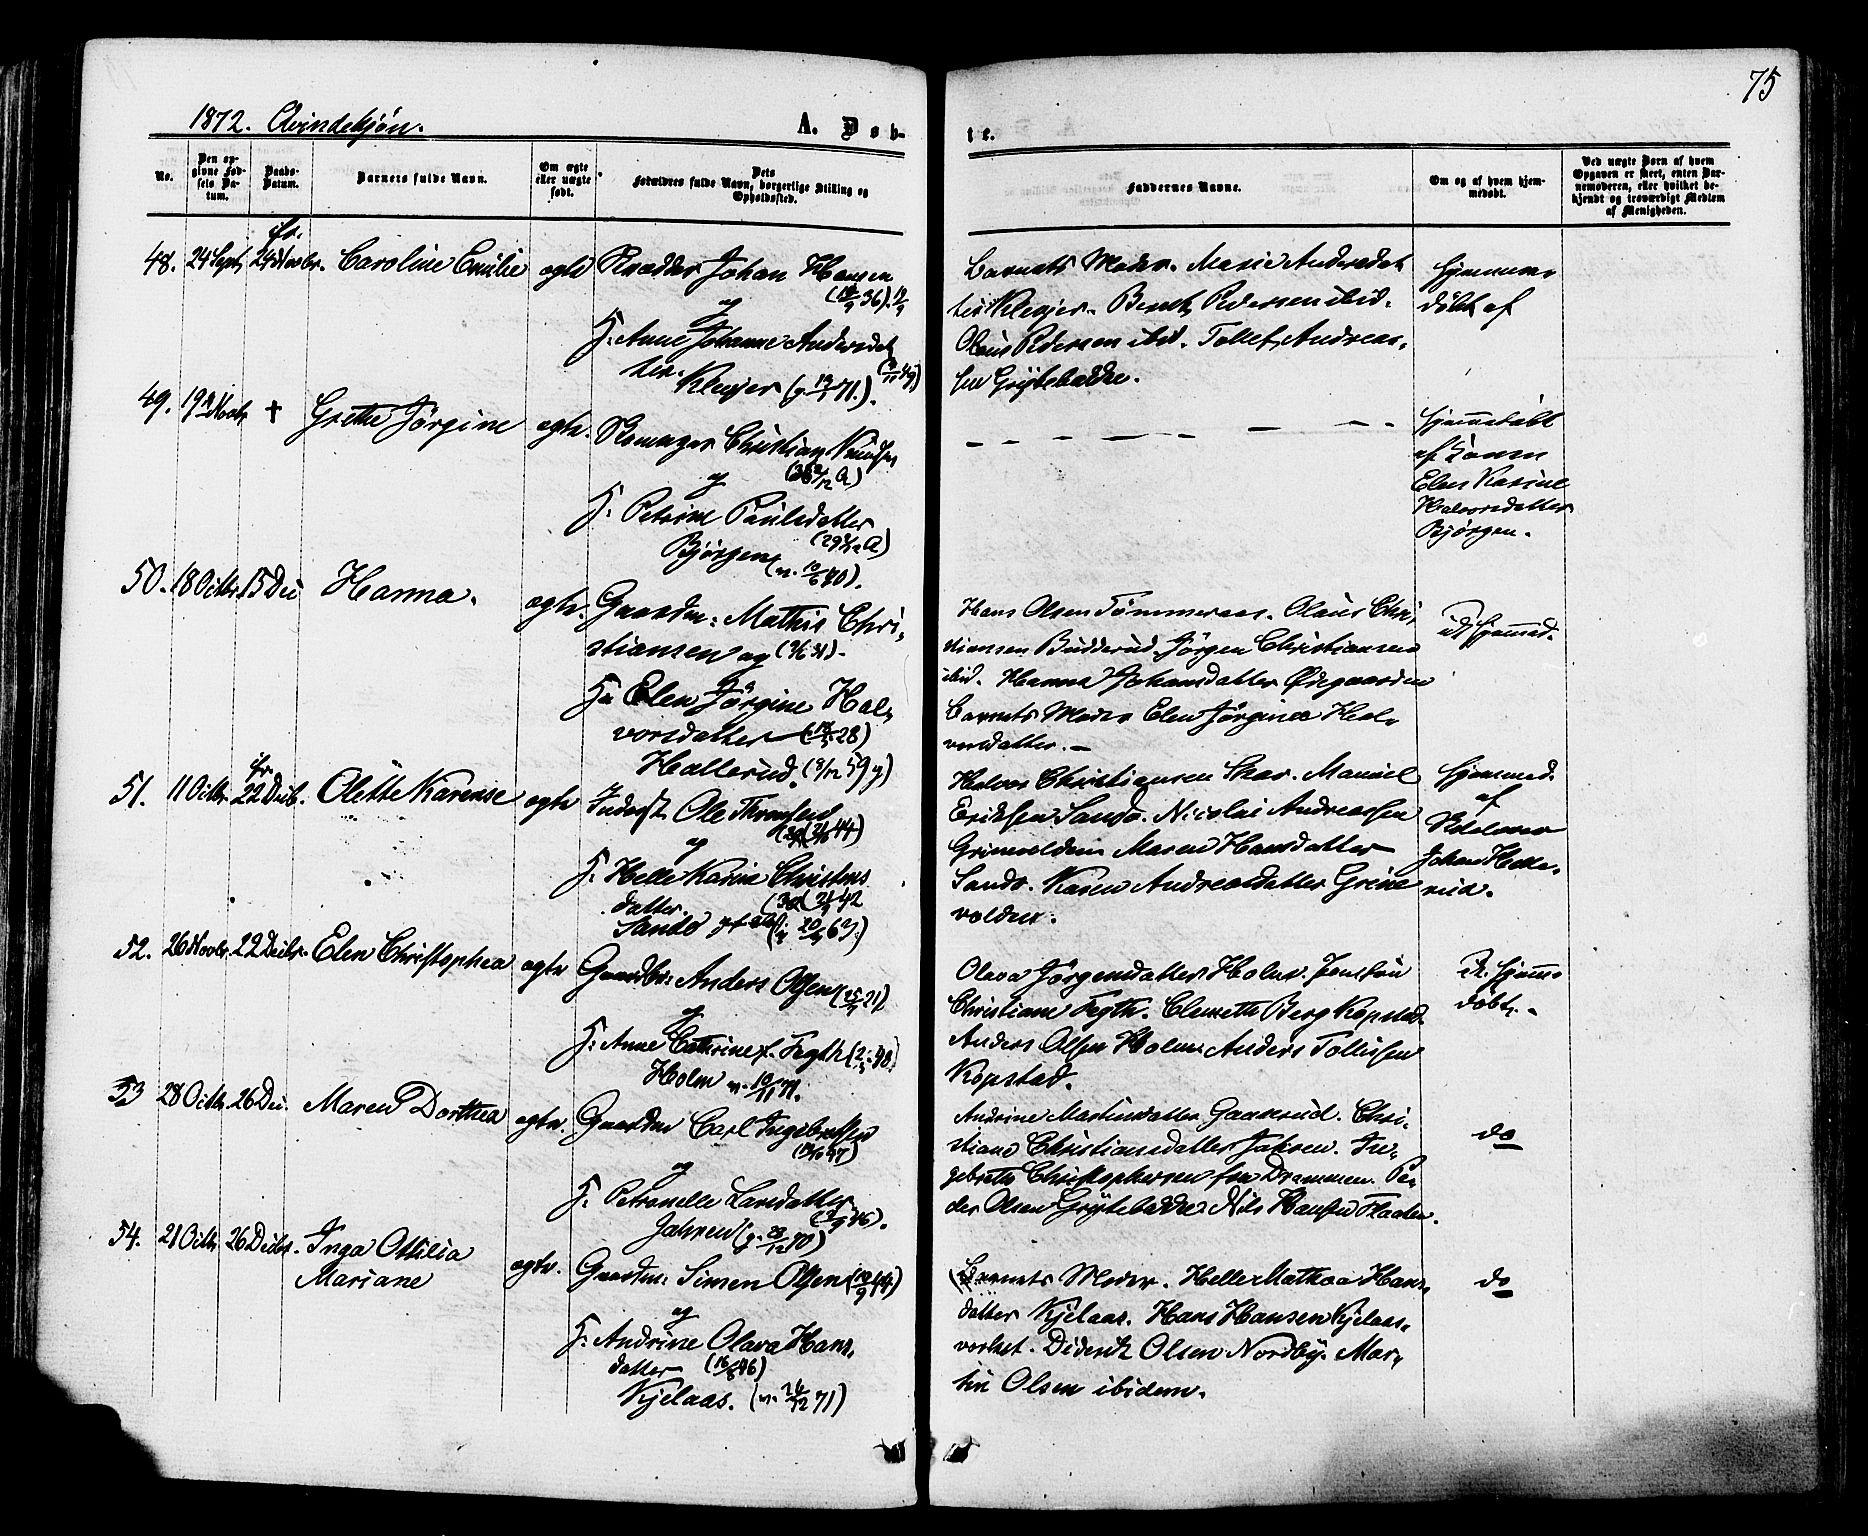 75
1872. Qvindekjön.
A. Døb-
te.
No.
Den op-
givne Fød-
sels Da-
tum.
Daabs-
Datum.
Barnets fulde Navn.
Om ægte
eller uægte
født.
Dets
Forældres fulde Navn, borgerlige Stilling og
Opholdssted.
Faddernes Navne.
Om og af hvem hjem-
medøbt.
Ved uægte Børn af hvem
Opgaven er skeet, enten Bar-
nemoderen, eller hvilket be-
kjendt og troværdigt Medlem
af Menigheden.
48. 24 Sept. 24 Novbr. Caroline Emilie ægte
Johan Hansen
og
H. Anne Johanne Andersdat
ter.
Klevjer
Barnets Moder. Marie Andersdat
ter Klevjer. Bendt Pedersen ibid.
Olaus Pedersen ibid. Tollef Andreas-
sen Grytebakke.
hjemme
døbt af
49. 19 Novbr. + Grethe Jørgine ægte.
Skomager Christian Knudsen
og
H. Petrine Paulsdatter
Bjørgen
hjemmedøbt
af Konen
Elen Karine
Halvorsdatter
Bjørgen.
50. 18 Octbr. 15 Dec Hanna. ægte.
Gaardm: Mathis Chri-
stiansen og
H. Elen Jørgine Hal-
vorsdatter
Hallerud.
Hans Olsen Tømmeraas. Olaus Chri-
stiansen Budderud. Jørgen Christiansen
ibid. Hanna Johansdatter Ødegaarden
Barnets Moder Elen Jørgine Hal-
vorsdatter.
ik hjemmed.
51. 11 Octbr. 22 Decb. Olette Karense ægte
Inderst Ole Thronsen
og
H. Helle Karine Christens
datter.
Sando
Halvor Christiansen Skar. Manuel
Eriksen Sando. Nicolai Andreassen
Grimvolden Maren Hansdatter
Sando. Karen Andreasdatter Grim
volden.
hjemmed.
af
Johan Halle-
rud.
52. 26 Novbr. 22 Decbr. Elen Christophea ægte
Gaardbr: Anders Olsen
og
H. Anne Cathrine f. Fegth
Holm
Olava Jørgensdatter Holm.
Christiane Fegth. Clemette Berg Kopstad.
Anders Olsen Holm. Anders Tollissen
Kopstad.
ik hjemme
døbt.
53 28 Octbr. 26 Dec. Maren Dorthea ægte.
Gaardm Carl Ingebretsen
og
H. Petronelle Larsdatter
Jahren
Andrine Martinsdatter Gaaserud. Chri-
stiane Christiansdatter Jahren. In-
gebreth Christophersen fra Drammen. Pe-
der Olsen Grytebakke. Nils Hansen Flaaten.
do
54. 21 Octbr. 26 Decbr. Inga Ottilia
Mariane
ægte.
Gaardm: Simen Olsen
og
H. Andrine Olava Hans-
datter
Kjelaas.
Barnets Moder. Helle Mathea Hans-
datter Kjelaas. Hans Hansen Kjelaas-
vorket. Diderik Olsen Nordby. Mar-
tin Olsen ibidem.
do